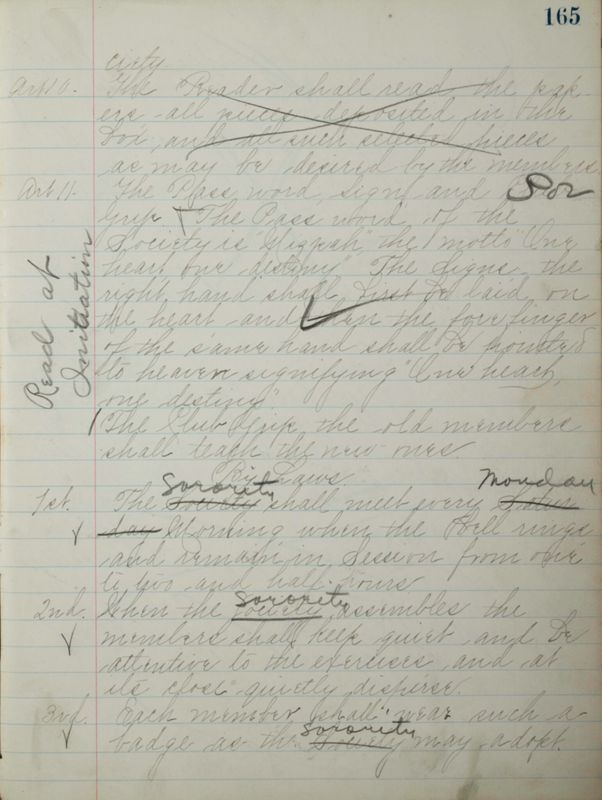 165
ciety
Art 10. The Reader shall read the pap-
ers - all pieces deposited in the
Box, and all such selected pieces
as may be desired by the members.
Art 11. The Pass word, sign, and
Grip The Pass word of the
Society is "Mizpah" the motto "One
heart one destiny" The Signs, the
right hand shall first be laid on
the heart and then the fore finger
of the same hand shall be pointed
to heaven signifying "One heart,
one destiny"
Read at
Initiation
The Club Grip the old members
shall teach the new ones
By Laws
Sorority Monday
1st. The Society shall meet every Satur
day Morning when the Bell rings
and remain in Session from one
to two and half hours
Sorority
2nd. When the Society assembles the
members shall keep quiet and be
attentive to the exercises, and at
its close quietly disperse.
3rd. Each member "shall" wear such a
Sorority
badge as the Society may adopt.